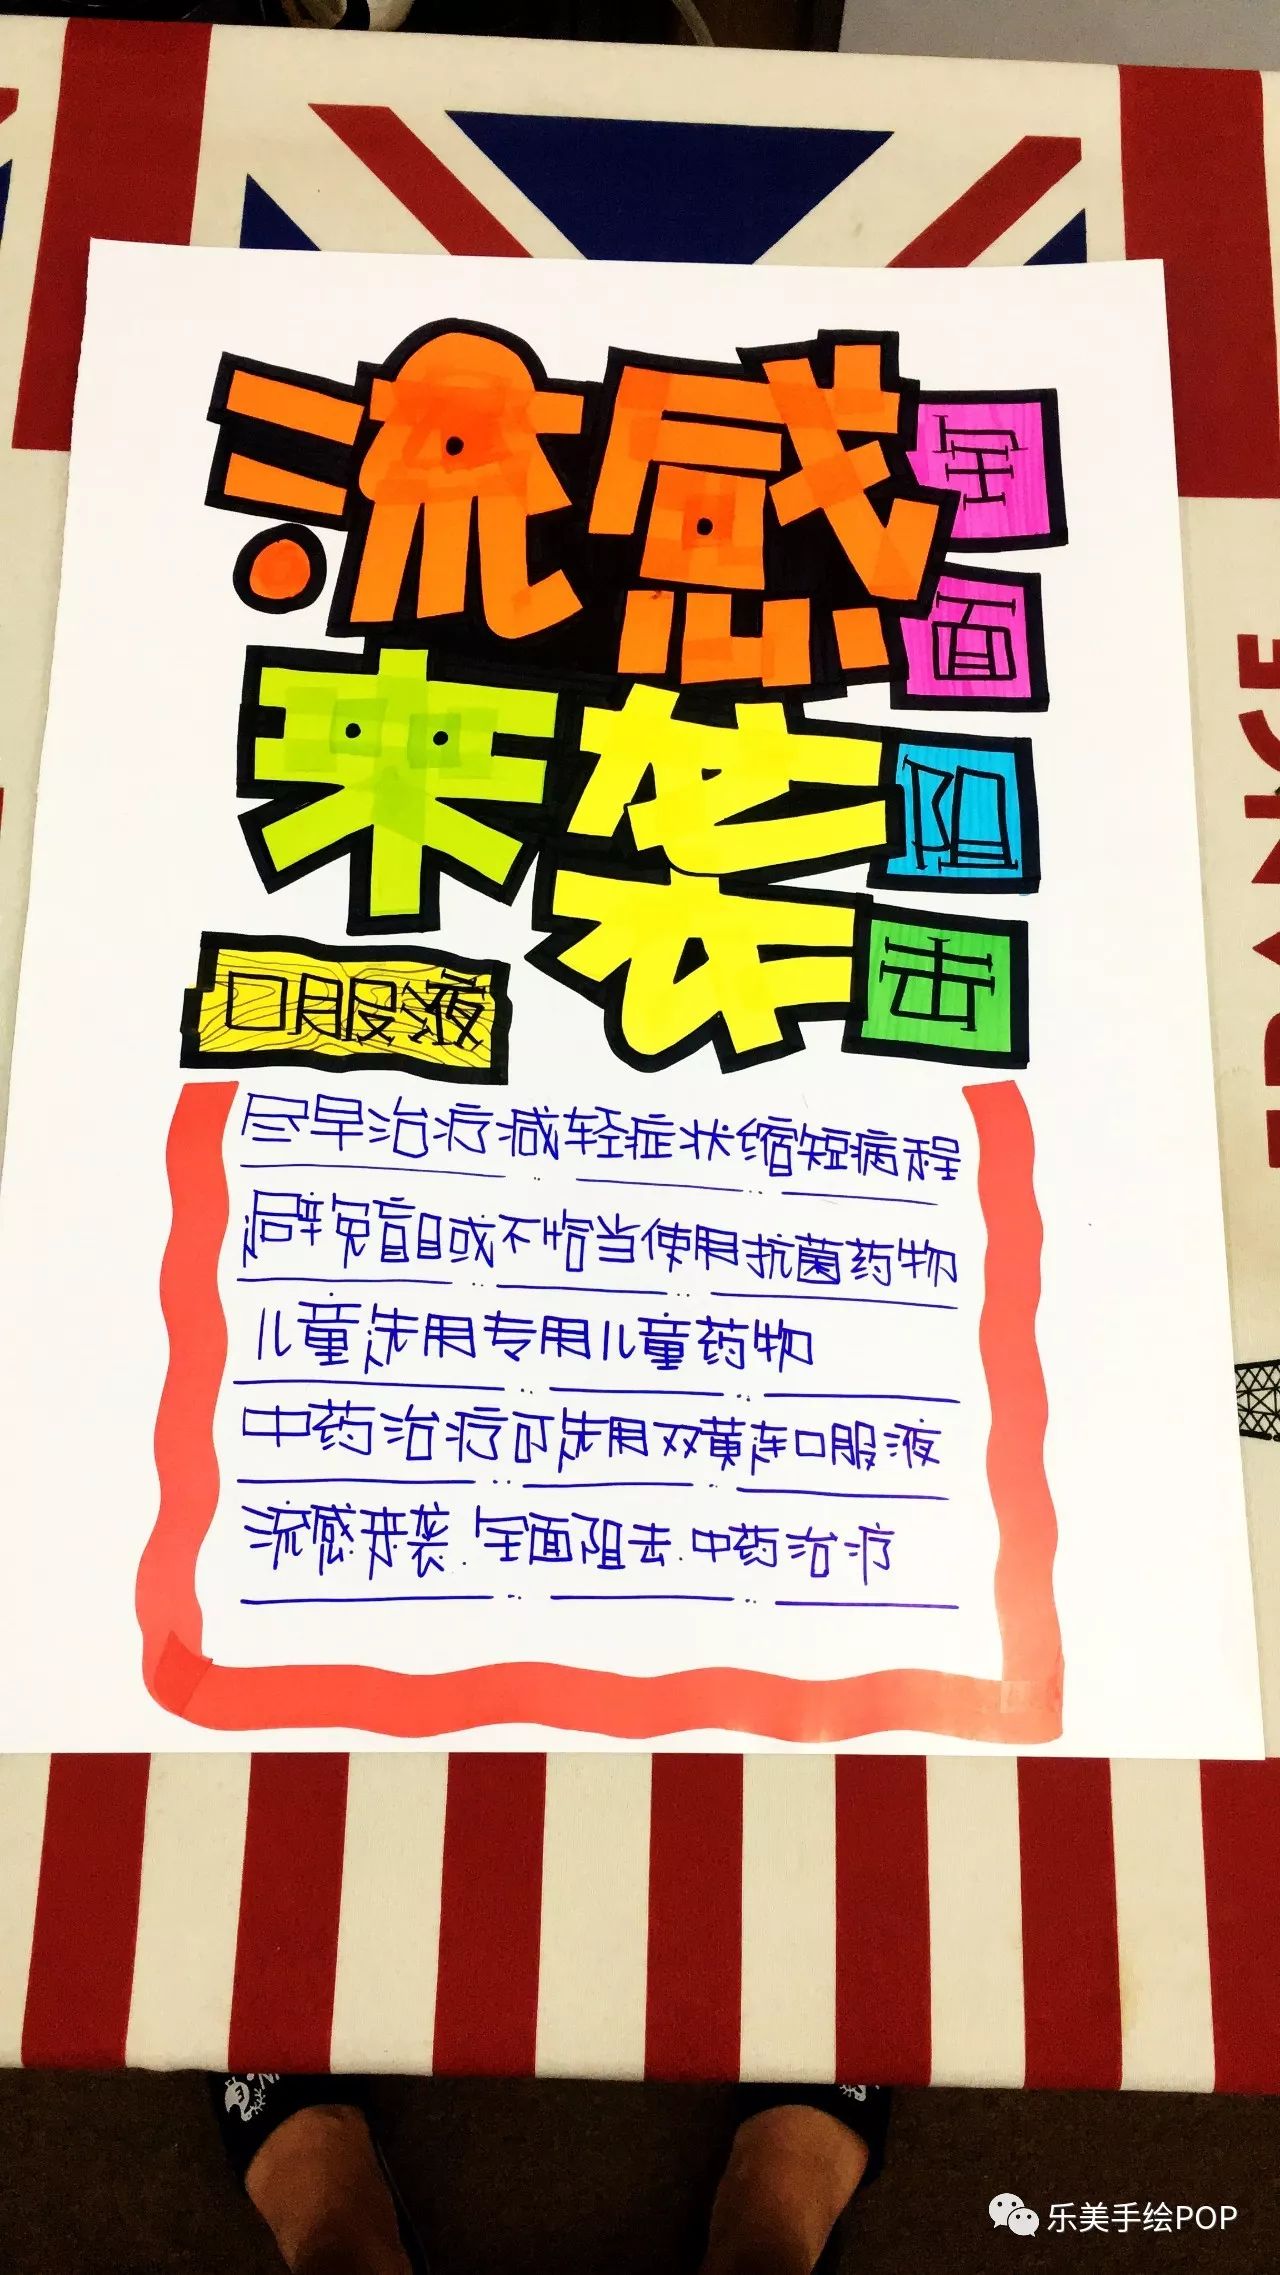 流感
来袭
全面阻击
口服液
尽早治疗减轻症状缩短病程
避免盲目或不恰当使用抗菌药物
儿童选用专用儿童药物
中药治疗可选用双黄连口服液
流感来袭.全面阻击.中药治疗
乐美手绘POP